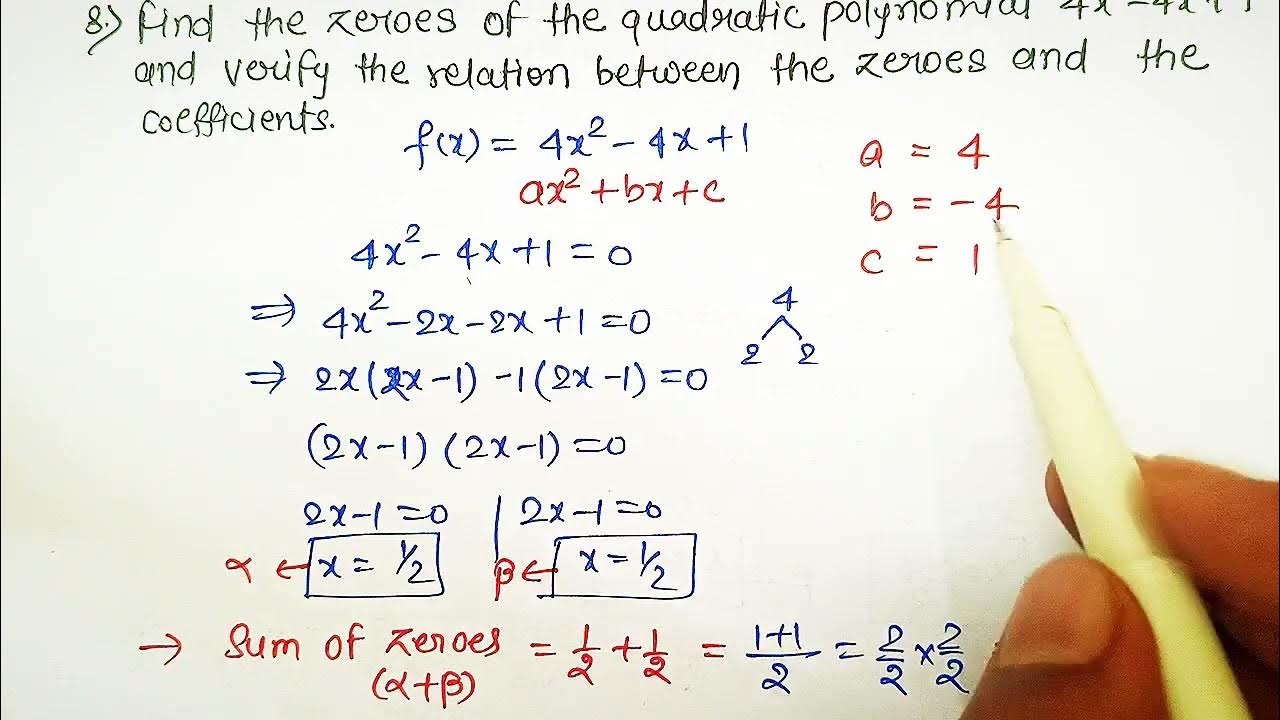 8.) Find the zeroes of the quadratic polynomial 4x²-4x+1
and verify the relation between the zeroes and the
coefficients.
f(x) = 4x² - 4x + 1
ax² + bx + c
a = 4
b = -4
c = 1
4x² - 4x + 1 = 0
⇒ 4x² - 2x - 2x + 1 = 0
4
2 2
⇒ 2x(2x-1) -1(2x-1) = 0
(2x-1) (2x-1) = 0
2x-1 = 0 | 2x-1 = 0
α ← x = 1/2 β ← x = 1/2
→ Sum of zeroes = 1/2 + 1/2 = 1+1/2 = 2/2 × 2/2
(α+β)